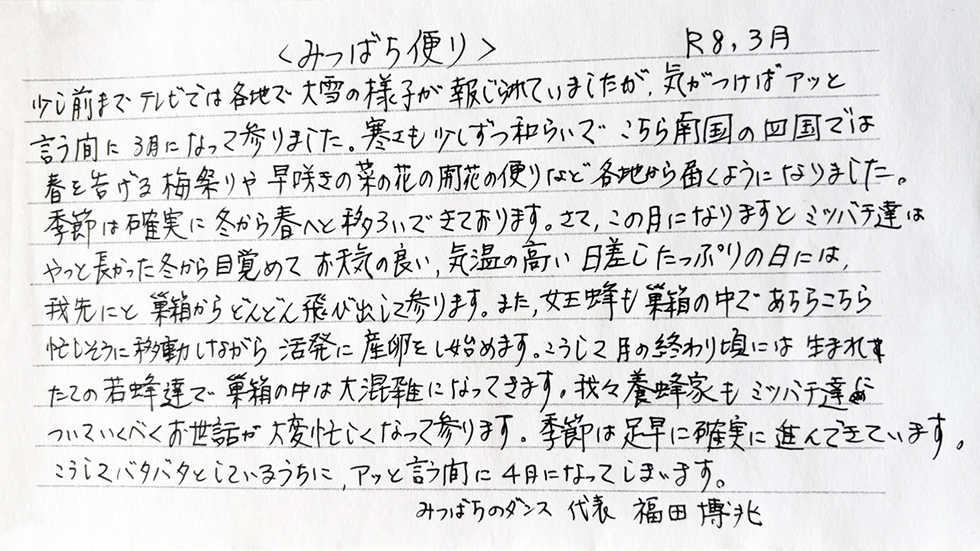 <みつばち便り>
R8,3月
少し前まで テレビでは 各地で 大雪の様子が 報じられていましたが、気がつけば アッと
言う間に 3月になって参りました。寒さも 少しずつ和らいで こちら南国の四国では
春を告げる 梅祭りや 早咲きの菜の花の開花の便りなど 各地から届くようになりました。
季節は確実に 冬から春へと移ろいできております。さて、この月になりますと ミツバチ達は
やっと長かった冬から目覚めて お天気の良い、気温の高い 日差したっぷりの日には、
我先にと 巣箱からどんどん飛び出して参ります。また、女王蜂も巣箱の中で あちらこちら
忙しそうに移動しながら 活発に 産卵をし始めます。こうして月の終わり頃には 生まれ
たての若蜂達で 巣箱の中は大混雑になってきます。我々養蜂家も ミツバチ達に
ついていくべく お世話が 大変忙しくなって参ります。季節は足早に確実に進んできています。
こうしてバタバタとしているうちに、アッと言う間に 4月になってしまいます。
みつばちのダンス 代表 福田 博兆